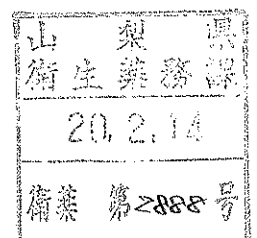 山梨県
衛生薬務課
20.2.14
衛薬 第2888号